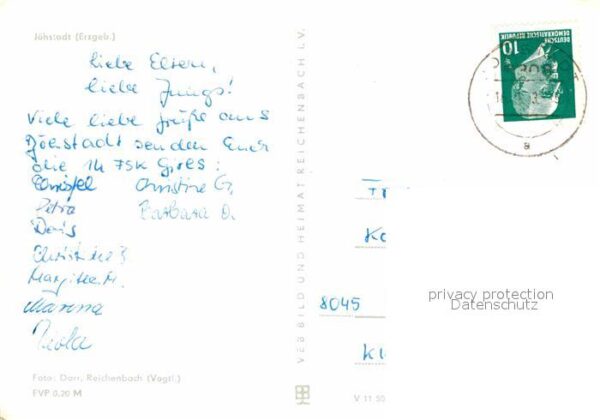 Jöhstadt (Erzgeb.)
Liebe Eltern,
liebe Jungs!
Viele liebe Grüße aus
Jöhstadt senden Euch
die 14 FSK Girls:
Christel Christine G.
Petra Barbara D.
Doris
Christine
Margitta M.
Marina
Viola
Foto: Darr, Reichenbach (Vogtl.)
EVP 0,20 M
VEB BILD UND HEIMAT REICHENBACH I. V.
V 11 50
10
DEUTSCHE
DEMOKRATISCHE REPUBLIK
a
8045
privacy protection
Datenschutz